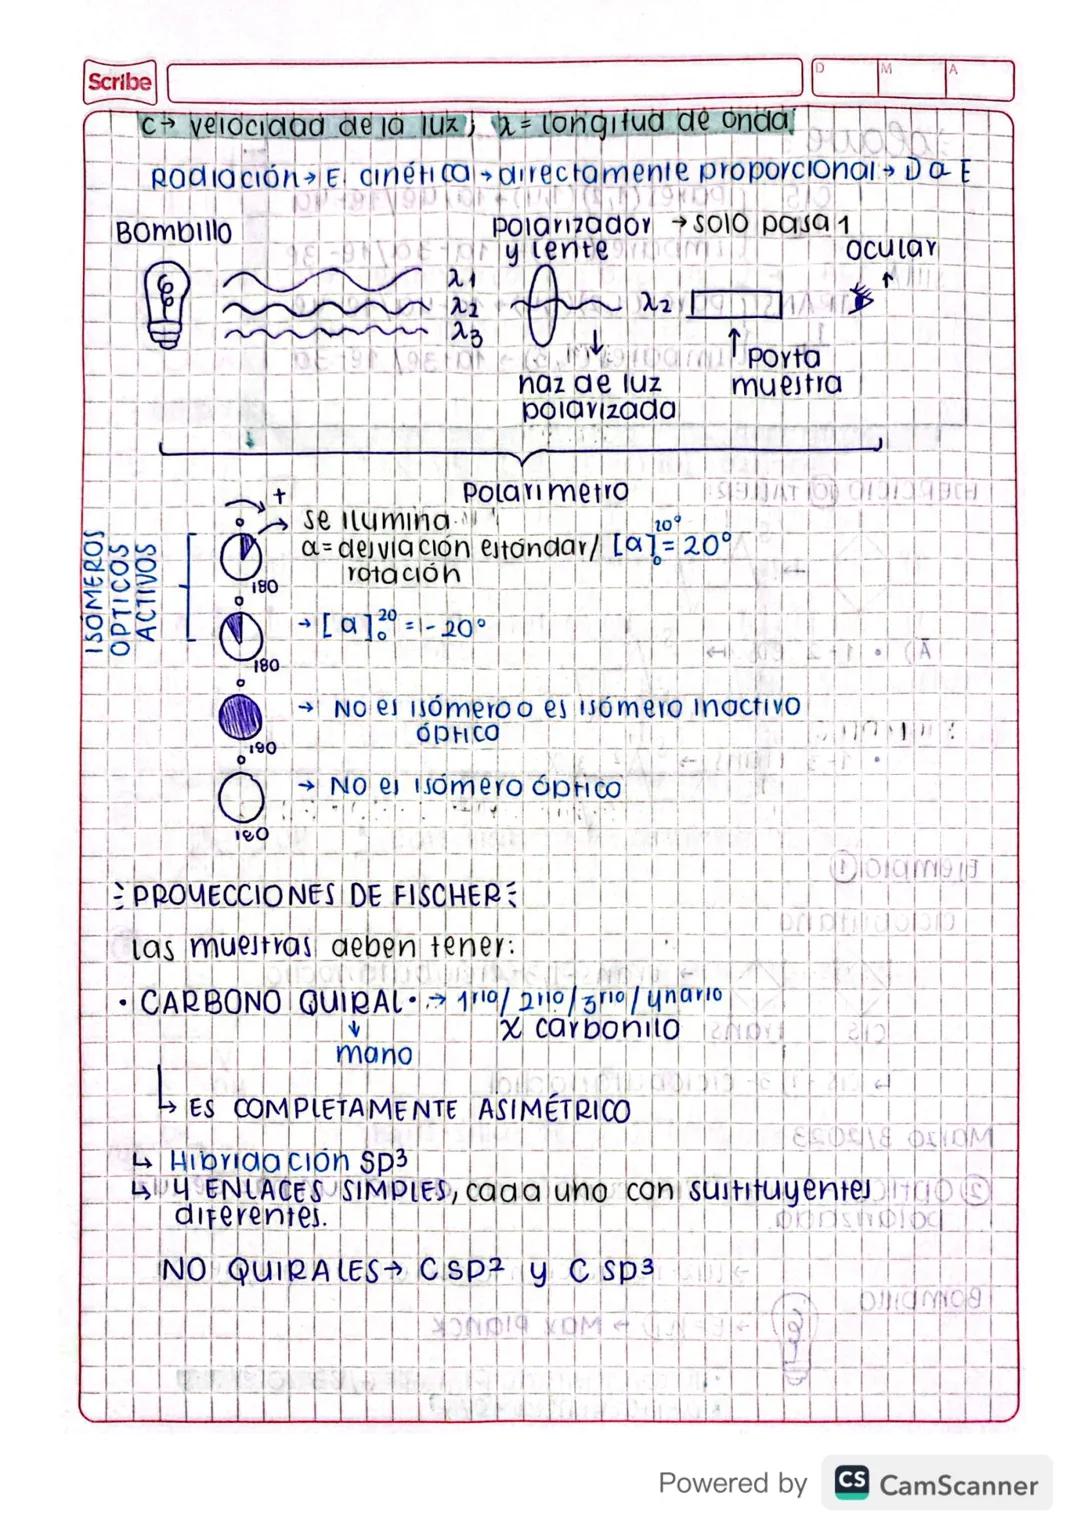 Scribe
D M A
c→ velocidad de la luz; λ = longitud de onda
Radiación → E. cinética → directamente proporcional → D a E
Bombillo
polarizador → solo pasa 1
y lente
ocular
λ1
λ2
λ3
λ2
haz de luz
polarizada
porta
muestra
Polarimetro
ISÓMEROS
OPTICOS
ACTIVOS
+
o
→ se ilumina
α = desviación estándar/ [α]20°o = 20°
rotación
180
o
→ [α]20o = -20°
180
o
→ No es isómero o es isómero inactivo
óptico
180
o
→ No es isómero óptico
180
PROYECCIONES DE FISCHER
las muestras deben tener:
• CARBONO QUIRAL • → 1rio/ 2rio/ 3rio/ 4nario
X carbonilo
mano
↳ ES COMPLETAMENTE ASIMÉTRICO
↳ Hibridación sp³
↳ 4 ENLACES SIMPLES, cada uno con sustituyentes
diferentes.
NO QUIRALES → C sp² y C sp³
Powered by CS CamScanner